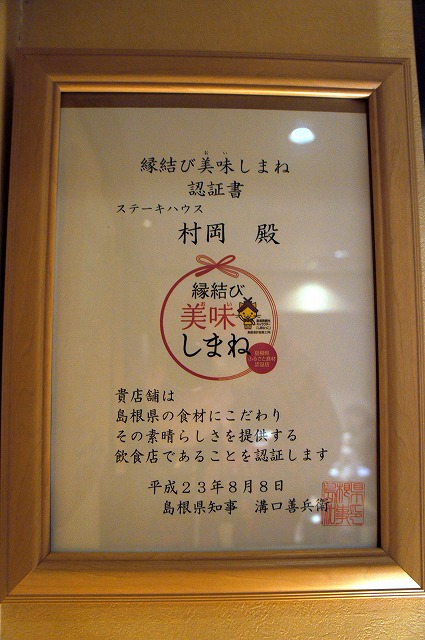 おい
縁結び美味しまね
認証書
ステーキハウス
村岡 殿
縁結び
おい
美味
しまね
島根県
ふるさと食材
認証店
貴店舗は
島根県の食材にこだわり
その素晴らしさを提供する
飲食店であることを認証します
平成23年8月8日
島根県知事 溝口善兵衛